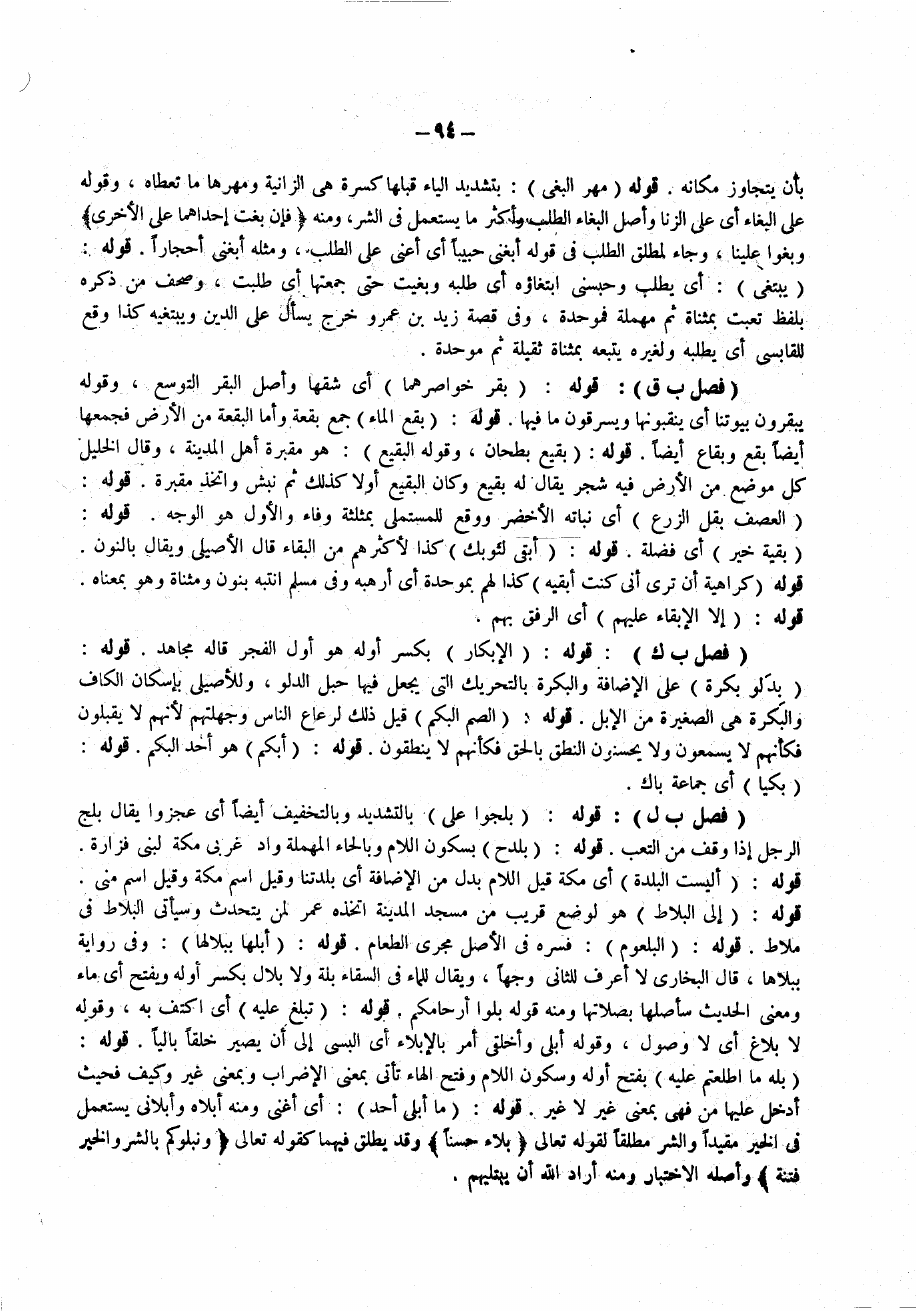 — ٩٤ —
بأن يتجاوز مكانه . قوله ( مهر البغى ) : بتشديد الياء قبلها كسرة هى الزانية ومهرها ما تعطاه ، وقوله
على البغاء أى على الزنا وأصل البغاء الطلب وأكثر ما يستعمل فى الشر ، ومنه ﴿ فإن بغت إحداهما على الأخرى ﴾
وبغوا علينا ، وجاء لمطلق الطلب فى قوله أبغنى حبيباً أى أعنى على الطلب ، ومثله أبغنى أحجاراً . قوله :
( يبتغى ) : أى يطلب وحبسنى ابتغاؤه أى طلبه وبغيت حتى جمعتها أى طلبت ، وصحف من ذكره
بلفظ تعبت بمثناة ثم مهملة فموحدة ، وفى قصة زيد بن عمرو خرج يسأل على الدين ويبتغيه كذا وقع
للقابسى أى يطلبه ولغيره يتبعه بمثناة ثقيلة ثم موحدة .
( فصل ب ق ) : قوله : ( بقر خواصرهما ) أى شقها وأصل البقر التوسع ، وقوله
يبقرون بيوتنا أى ينقبونها ويسرقون ما فيها . قوله : ( بقع الماء ) جمع بقعة وأما البقعة من الأرض فجمعها
أيضاً بقع وبقاع أيضاً . قوله : ( بقيع بطحان ، وقوله البقيع ) : هو مقبرة أهل المدينة ، وقال الخليل
كل موضع من الأرض فيه شجر يقال له بقيع وكان البقيع أولا كذلك ثم نبش واتخذ مقبرة . قوله :
( العصف بقل الزرع ) أى نباته الأخضر ووقع للمستملى بمثلثة وفاء والأول هو الوجه . قوله :
( بقية خير ) أى فضلة . قوله : ( أبقى لثوبك ) كذا لأكثرهم من البقاء قال الأصيلى ويقال بالنون .
قوله ( كراهية أن ترى أنى كنت أبقيه ) كذا لهم بموحدة أى أرهبه وفى مسلم انتبه بنون ومثناة وهو بمعناه .
قوله : ( إلا الإبقاء عليهم ) أى الرفق بهم .
( فصل ب ك ) : قوله : ( الإبكار ) بكسر أوله هو أول الفجر قاله مجاهد . قوله :
( بدلو بكرة ) على الإضافة والبكرة بالتحريك التى يجعل فيها حبل الدلو ، وللأصيلى بإسكان الكاف
والبكرة هى الصغيرة من الإبل . قوله : ( الصم البكم ) قيل ذلك لرعاع الناس وجهلتهم لأنهم لا يقبلون
فكأنهم لا يسمعون ولا يحسنون النطق بالحق فكأنهم لا ينطقون . قوله : ( أبكم ) هو أحد البكم . قوله :
( بكيا ) أى جماعة باك .
( فصل ب ل ) : قوله : ( بلجوا على ) بالتشديد وبالتخفيف أيضاً أى عجزوا يقال بلج
الرجل إذا وقف من التعب . قوله : ( بلدح ) بسكون اللام وبالحاء المهملة واد غربى مكة لبنى فزارة .
قوله : ( أليست البلدة ) أى مكة قيل اللام بدل من الإضافة أى بلدتنا وقيل اسم مكة وقيل اسم منى .
قوله : ( إلى البلاط ) هو لوضع قريب من مسجد المدينة اتخذه عمر لمن يتحدث وسيأتى البلاط فى
ملاط . قوله : ( البلعوم ) : فسره فى الأصل مجرى الطعام . قوله : ( أبلها ببلالها ) : وفى رواية
ببلاها ، قال البخارى لا أعرف للثانى وجهاً ، ويقال للماء فى السقاء بلة ولا بلال بكسر أوله ويفتح أى ماء
ومعنى الحديث سأصلها بصلاتها ومنه قوله بلوا أرحامكم . قوله : ( تبلغ عليه ) أى اكتف به ، وقوله
لا بلاغ أى لا وصول ، وقوله أبلى وأخلقى أمر بالإبلاء أى البسى إلى أن يصير خلقاً بالياً . قوله :
( بله ما اطلعتم عليه ) بفتح أوله وسكون اللام وفتح الهاء تأتى بمعنى الإضراب وبمعنى غير وكيف فحيث
أدخل عليها من فهى بمعنى غير لا غير . قوله : ( ما أبلى أحد ) : أى أغنى ومنه أبلاه وأبلانى يستعمل
فى الخير مقيداً والشر مطلقاً لقوله تعالى ﴿ بلاء حسناً ﴾ وقد يطلق فيهما كقوله تعالى ﴿ ونبلوكم بالشر والخير
فتنة ﴾ وأصله الاختبار ومنه أراد الله أن يبتليهم .